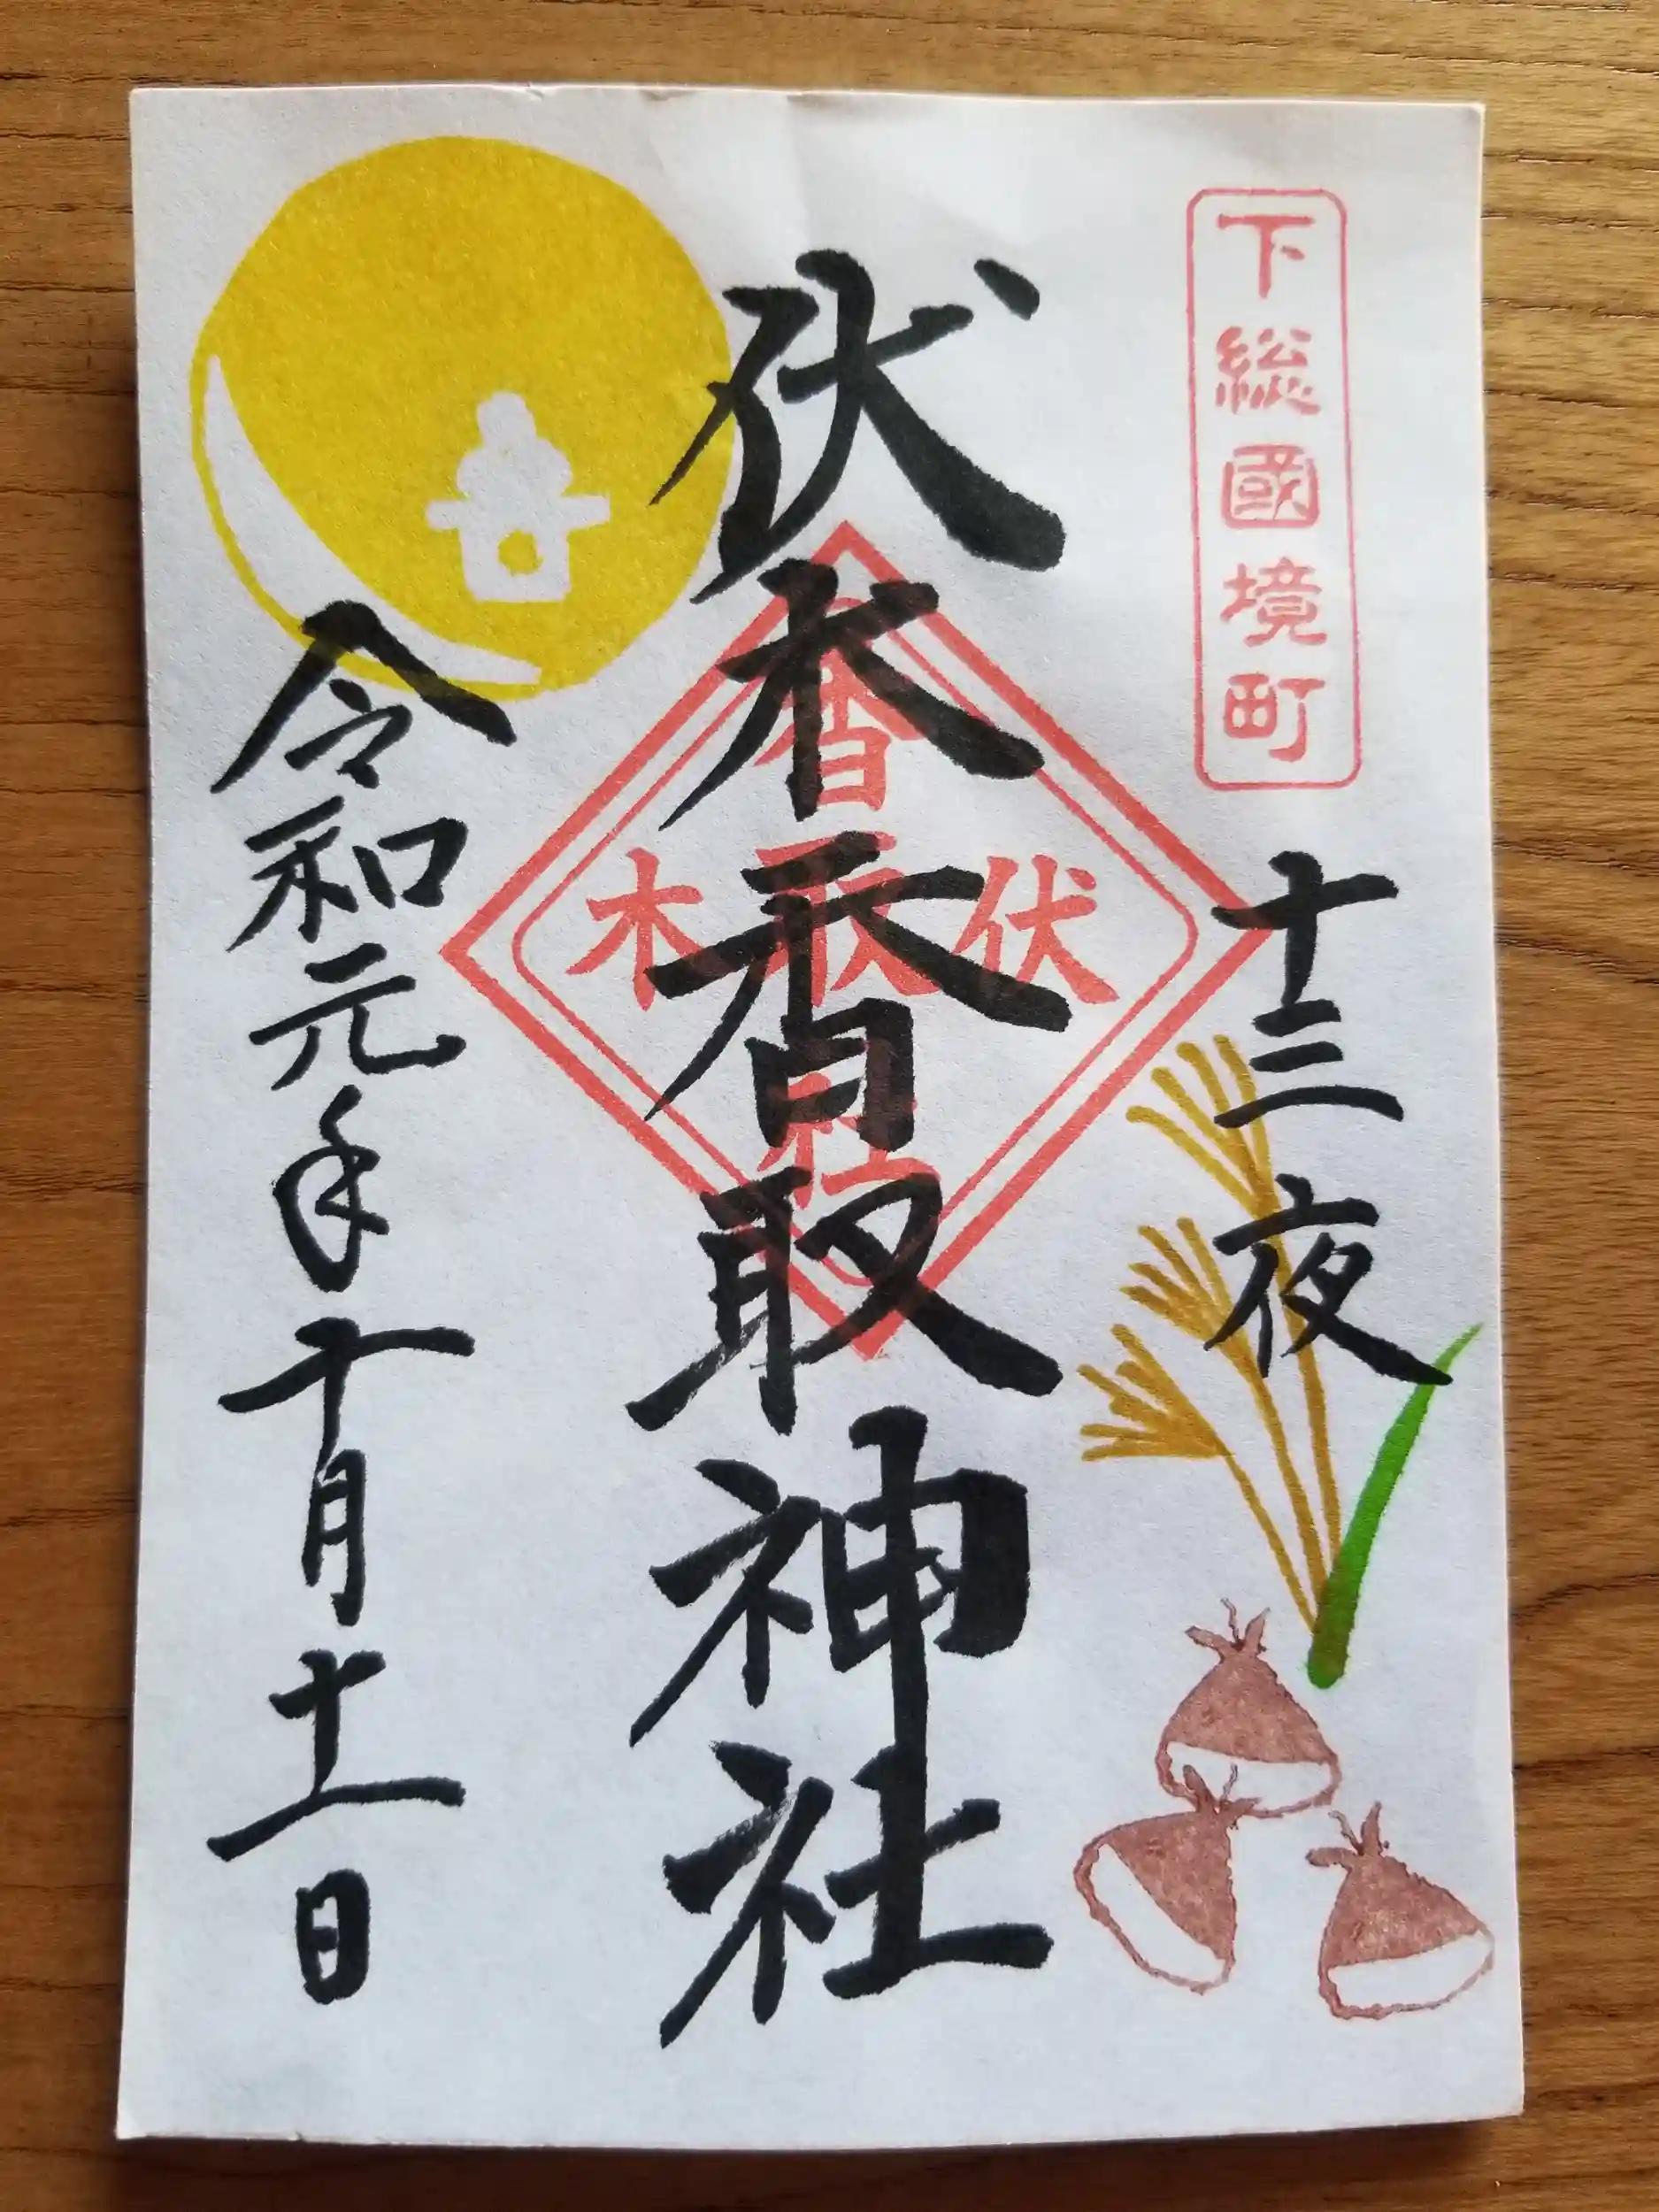 下総國境町
十三夜
伏木香取神社
伏木
香取社
令和元年十月十一日